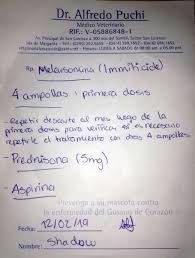 Dr. Alfredo Puchi
Médico Veterinario
RIF.: V-05886848-1
Rp. Melarsomina (Immiticide)
4 ampollas: primera dosis
- Repetir descarte al mes luego de la
primera dosis para verificar si es necesario
repetirle el tratamiento con otras 4 ampollas
- Prednisona (5mg)
- Aspirina
Prevenga a su mascota contra
la enfermedad del Gusano de Corazón
Fecha: 12/02/19
Nombre: Shadow